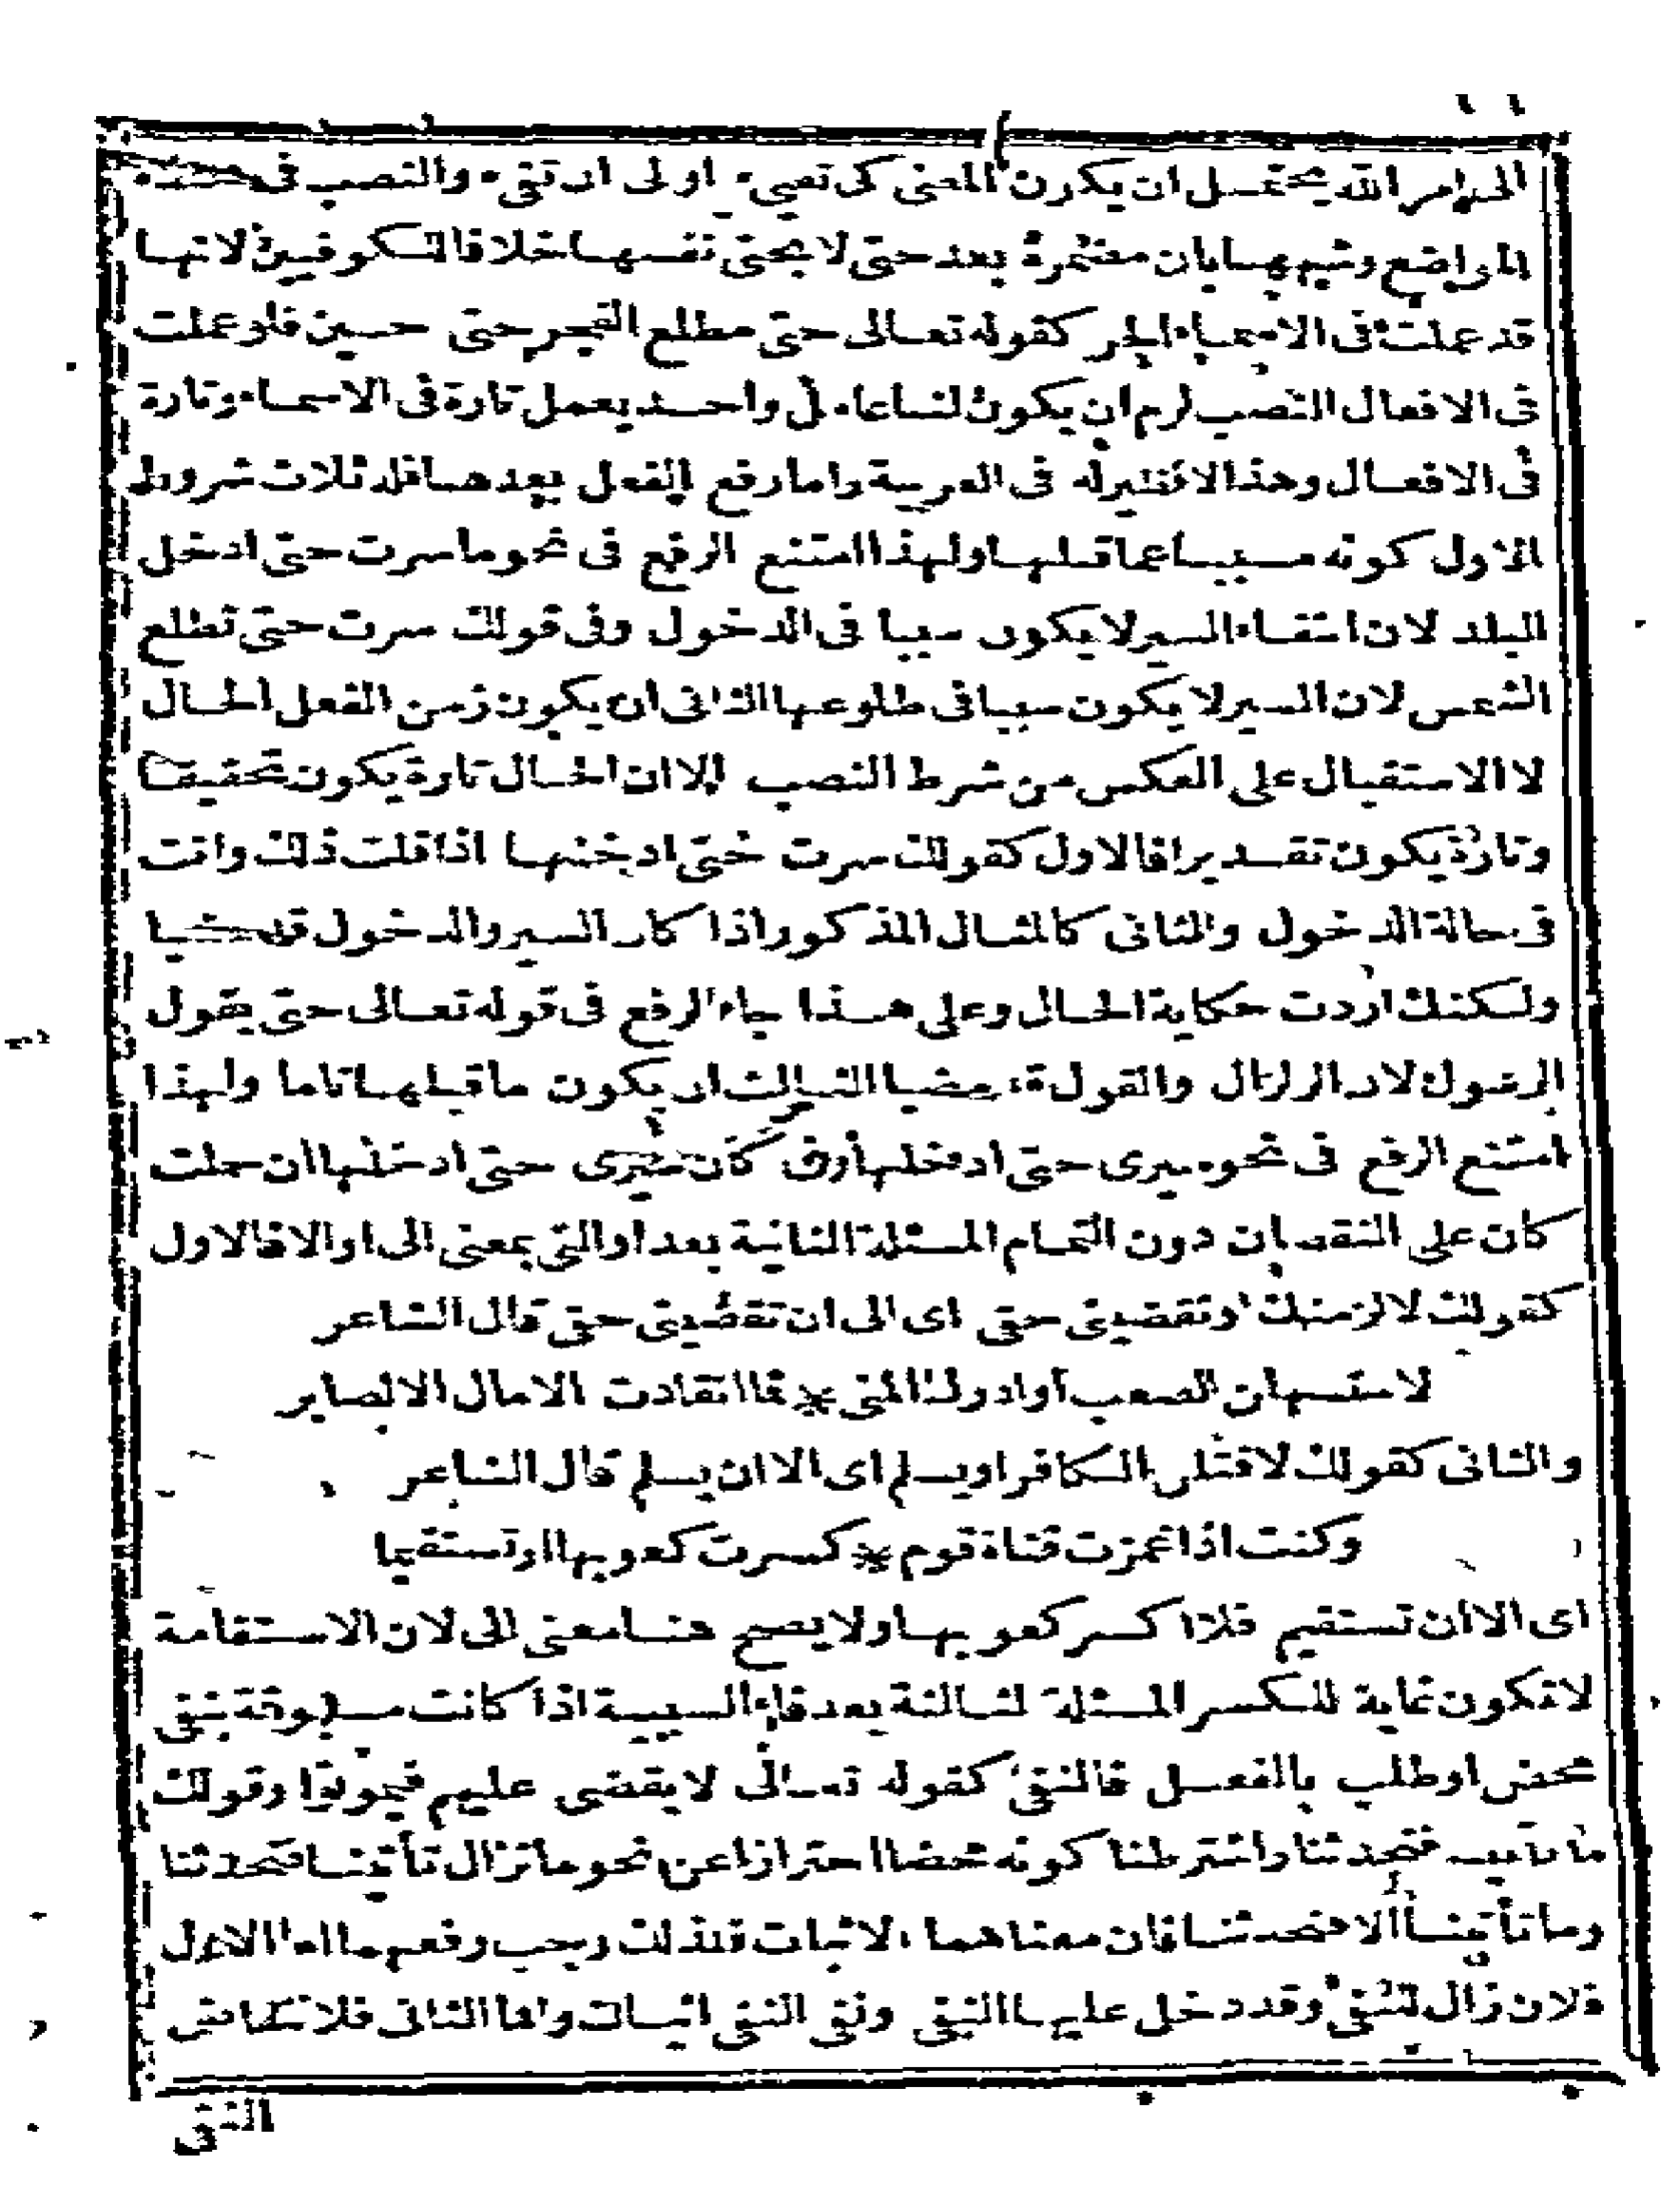 الى امر الله يحتمل ان يكون المعنى كى تفىء او الى ان تفىء والنصب فى هذه
المواضع وشبهها بان مضمرة بعد حتى لا بحتى نفسها خلافا للكوفيين لانها
قد عملت فى الاسماء الجر كقوله تعالى حتى مطلع الفجر حتى حين فلو عملت
فى الافعال النصب لزم ان يكون لنا عامل واحد يعمل تارة فى الاسماء وتارة
فى الافعال وهذا لا نظير له فى العربية واما رفع الفعل بعدها فله ثلاث شروط
الاول كونه مسببا عما قبلها ولهذا امتنع الرفع فى نحو ما سرت حتى ادخل
البلد لان انتفاء السير لا يكون سببا فى الدخول وفى قولك سرت حتى تطلع
الشمس لان السير لا يكون سببا فى طلوعها الثانى ان يكون زمن الفعل الحال
لا الاستقبال على العكس من شرط النصب الا ان الحال تارة يكون تحقيقا
وتارة يكون تقديرا فالاول كقولك سرت حتى ادخلها اذا قلت ذلك وانت
فى حالة الدخول والثانى كالمثال المذكور اذا كان السير والدخول قد مضيا
ولكنك اردت حكاية الحال وعلى هذا جاء الرفع فى قوله تعالى حتى يقول
الرسول لان الزلزال والقول قد مضيا الثالث ان يكون ما قبلها تاما ولهذا
امتنع الرفع فى نحو سيرى حتى ادخلها وفى كان سيرى حتى ادخلها ان حملت
كان على النقصان دون التمام المسئلة الثانية بعد او التى بمعنى الى او الا فالاول
كقولك لالزمنك او تقضينى حقى اى الى ان تقضينى حقى قال الشاعر
لاستسهلن الصعب او ادرك المنى * فما انقادت الامال الا لصابر
والثانى كقولك لاقتلن الكافر او يسلم اى الا ان يسلم قال الشاعر
وكنت اذا غمزت قناة قوم * كسرت كعوبها او تستقيما
اى الا ان تستقيم فلا اكسر كعوبها ولا يصح هنا معنى الى لان الاستقامة
لا تكون غاية للكسر المسئلة الثالثة بعد فاء السببية اذا كانت مسبوقة بنفى
محض او طلب بالفعل فالنفى كقوله تعالى لا يقضى عليهم فيموتوا وقولك
ما تأتينا فتحدثنا واشترطنا كونه محضا احترازا عن نحو ما تزال تأتينا فتحدثنا
وما تأتينا الا فتحدثنا فان معناهما الاثبات فلذلك وجب رفعهما اما الاول
فلان زال للنفى وقد دخل عليها النفى ونفى النفى اثبات واما الثانى فلانتقاض
النفى